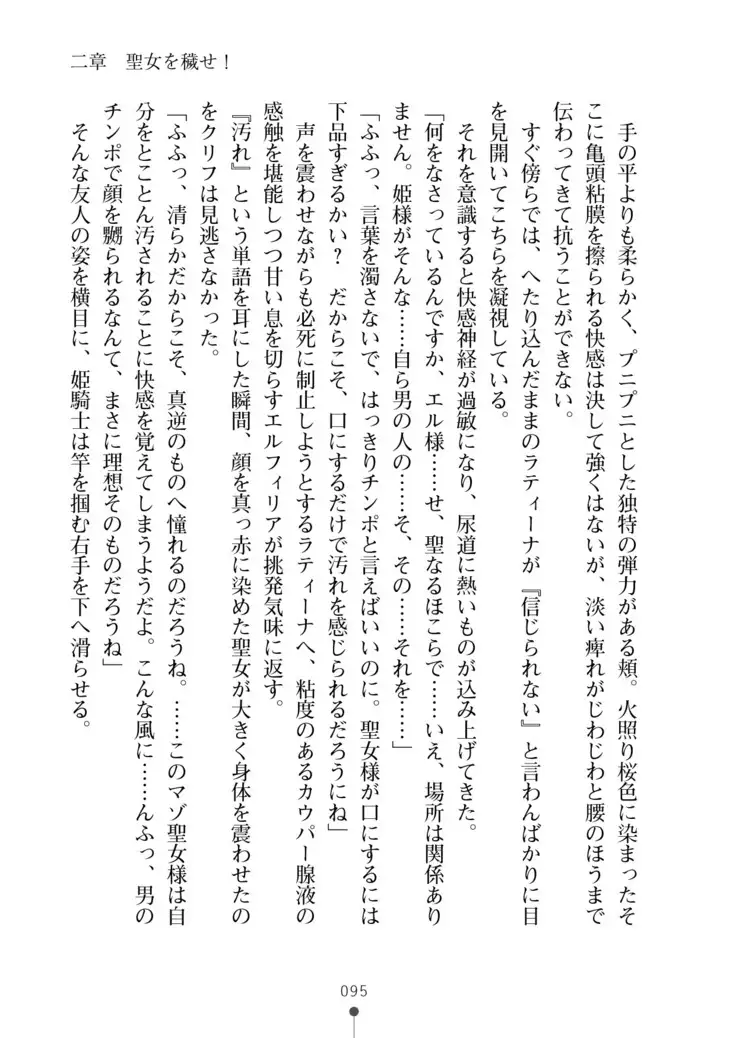 二章　聖女を穢せ！
　手の平よりも柔らかく、プニプニとした独特の弾力がある頬。火照り桜色に染まったそ
こに亀頭粘膜を擦られる快感は決して強くはないが、淡い痺れがじわじわと腰のほうまで
伝わってきて抗うことができない。
　すぐ傍らでは、へたり込んだままのラティーナが『信じられない』と言わんばかりに目
を見開いてこちらを凝視している。
　それを意識すると快感神経が過敏になり、尿道に熱いものが込み上げてきた。
「何をなさっているんですか、エル様……せ、聖なるほこらで……いえ、場所は関係あり
ません。姫様がそんな……自ら男の人の……そ、その……それを……」
「ふふっ、言葉を濁さないで、はっきりチンポと言えばいいのに。聖女様が口にするには
下品すぎるかい？　だからこそ、口にするだけで汚れを感じられるだろうにね」
　声を震わせながらも必死に制止しようとするラティーナへ、粘度のあるカウパー腺液の
感触を堪能しつつ甘い息を切らすエルフィリアが挑発気味に返す。
『汚れ』という単語を耳にした瞬間、顔を真っ赤に染めた聖女が大きく身体を震わせたの
をクリフは見逃さなかった。
「ふふっ、清らかだからこそ、真逆のものへ憧れるのだろうね。……このマゾ聖女様は自
分をとことん汚されることに快感を覚えてしまうようだよ。こんな風に……んふっ、男の
チンポで顔を嬲られるなんて、まさに理想そのものだろうね」
　そんな友人の姿を横目に、姫騎士は竿を掴む右手を下へ滑らせる。
095